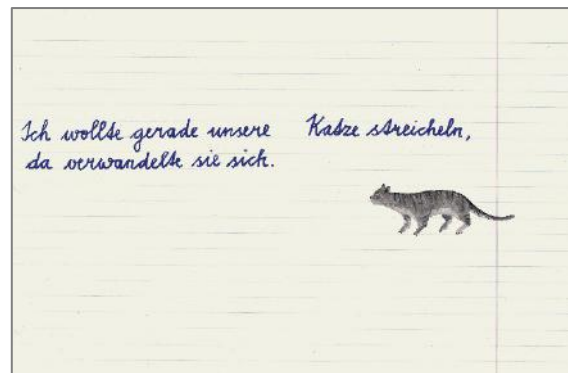 Ich wollte gerade unsere Katze streicheln,
da verwandelte sie sich.